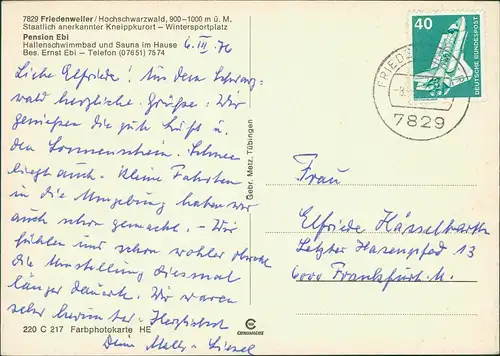 7829 Friedenweiler / Hochschwarzwald, 900–1000 m ü. M.
Staatlich anerkannter Kneippkurort – Wintersportplatz
Pension Ebi
Hallenschwimmbad und Sauna im Hause
Bes. Ernst Ebi – Telefon (07651) 7574
6. III. 76
Liebe Elfriede! Aus dem Schwarz-
wald herzliche Grüße. Wir
genießen die gute Luft u.
den Sonnenschein. Schnee
liegt auch. Kleine Fahrten
in die Umgebung haben wir
auch schon gemacht. – Wir
fühlen uns schon wohler obwohl
die Umstellung diesmal
länger dauerte. Wir waren
sehr herunter. Herzlichst
Deine
220 C 217 Farbphotokarte HE
Gebr. Metz, Tübingen
CHROMOLUX
40
DEUTSCHE BUNDESPOST
7829
Frau
Elfriede Hässelbarth
Letzter Hasenpfad 13
6000 Frankfurt M.